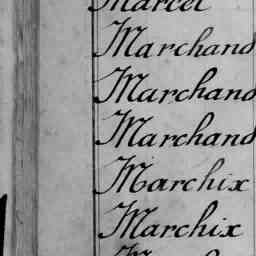 Marcel
Marchand
Marchand
Marchand
Marchix
Marchix